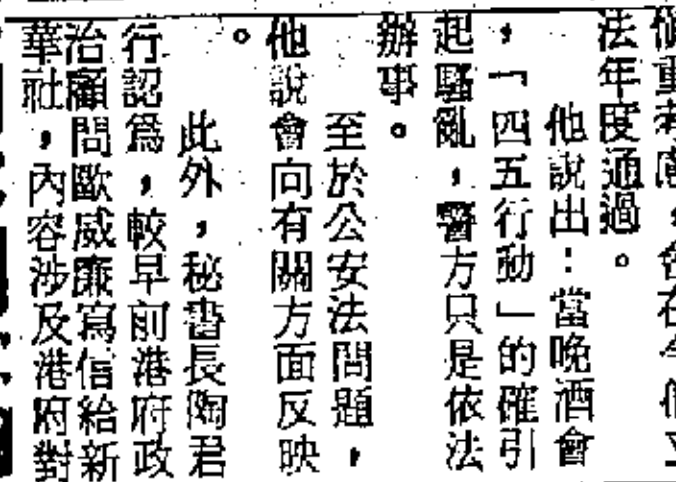 法年度通過。
他說出：當晚酒會
，「四五行動」的確引
起騷亂，警方只是依法
辦事。
至於公安法問題，
他說會向有關方面反映
。
此外，秘書長陶君
行認為，較早前港府政
治顧問歐威廉寫信給新
華社，內容涉及港府對